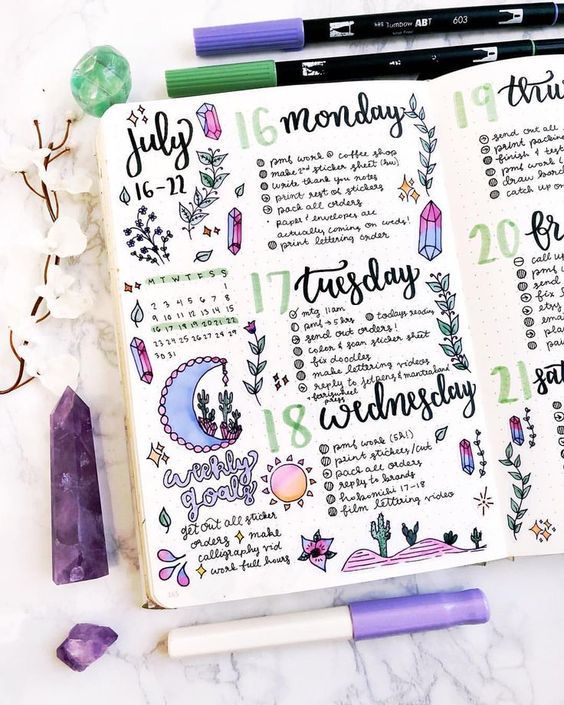 Tombow ABT
603
July
16-22
M T W T F S S
1
2 3 4 5 6 7 8
9 10 11 12 13 14 15
16 17 18 19 20 21 22
23 24 25 26 27 28 29
30 31
weekly
goals
get out all sticker
orders make
calligraphy vid
work full hours
16 monday
pmf work @ coffee shop
make 2nd sticker sheet
write thank you notes
print rest of stickers
pack all orders
paper & envelopes are
actually coming on weds!
print lettering order
17 tuesday
mtg 11am
pmf → 5 hrs
todays ready
send out orders!
color & scan sticker sheet
fix doodles
make lettering videos
reply to jetpens &
press
18 wednesday
pmf work (5h!)
print stickers/cut
pack all orders
reply to brands
hobonichi 17-18
film lettering video
19 thu
send out all
print packing
finish & test
pmf work
draw
catch up on
20 fr
call up
pmf
send
fix
etsy
email
plan
paint
21 sat